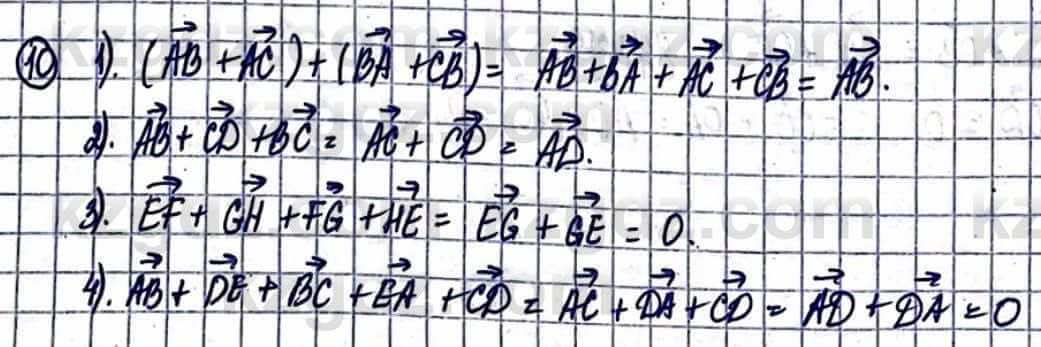 10 1). (AB⃗ + AC⃗) + (BA⃗ + CB⃗) = AB⃗ + BA⃗ + AC⃗ + CB⃗ = AB⃗.
2). AB⃗ + CD⃗ + BC⃗ = AC⃗ + CD⃗ = AD⃗.
3). EF⃗ + GH⃗ + FG⃗ + HE⃗ = EG⃗ + GE⃗ = 0.
4). AB⃗ + DE⃗ + BC⃗ + EA⃗ + CD⃗ = AC⃗ + DA⃗ + CD⃗ = AD⃗ + DA⃗ = 0